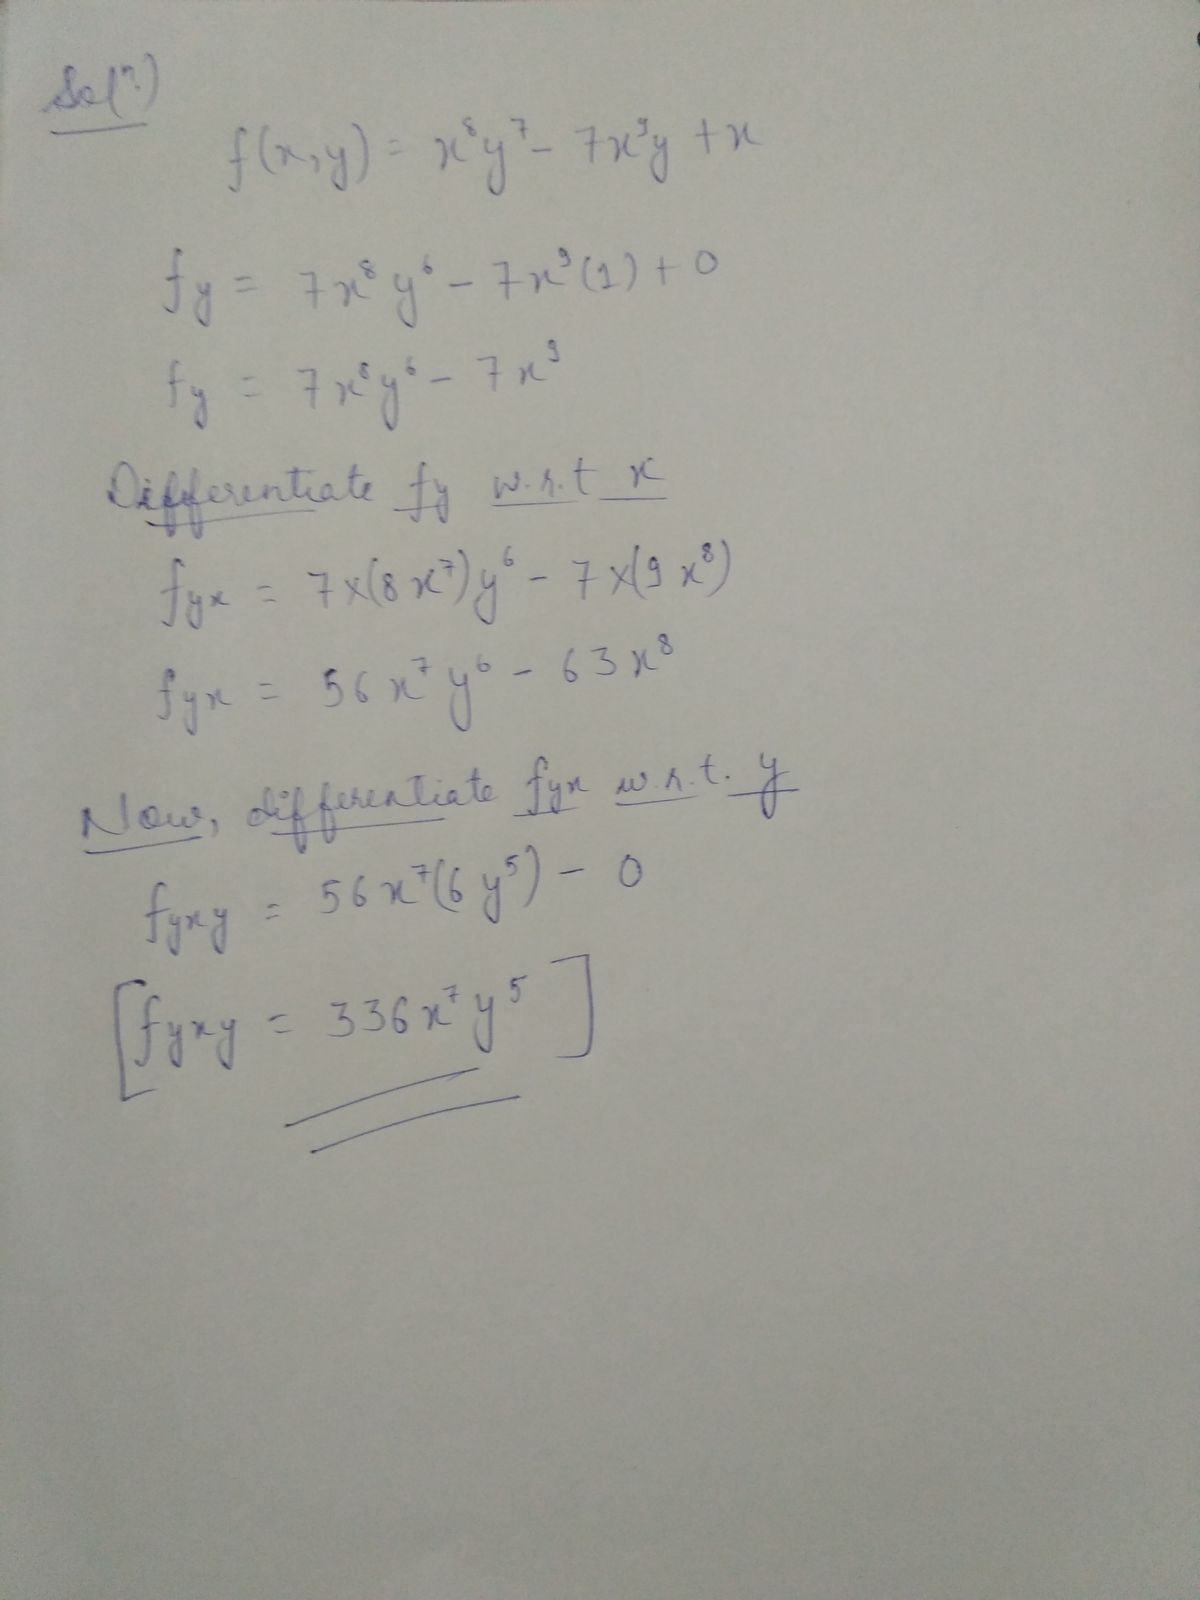 Solⁿ:)
f(x,y) = x⁸y⁷ - 7x⁹y + x
fy = 7x⁸y⁶ - 7x⁹(1) + 0
fy = 7x⁸y⁶ - 7x⁹
Differentiate fy w.r.t x
fyx = 7×(8x⁷)y⁶ - 7×(9x⁸)
fyx = 56x⁷y⁶ - 63x⁸
Now, differentiate fyx w.r.t. y
fyxy = 56x⁷(6y⁵) - 0
[fyxy = 336x⁷y⁵]